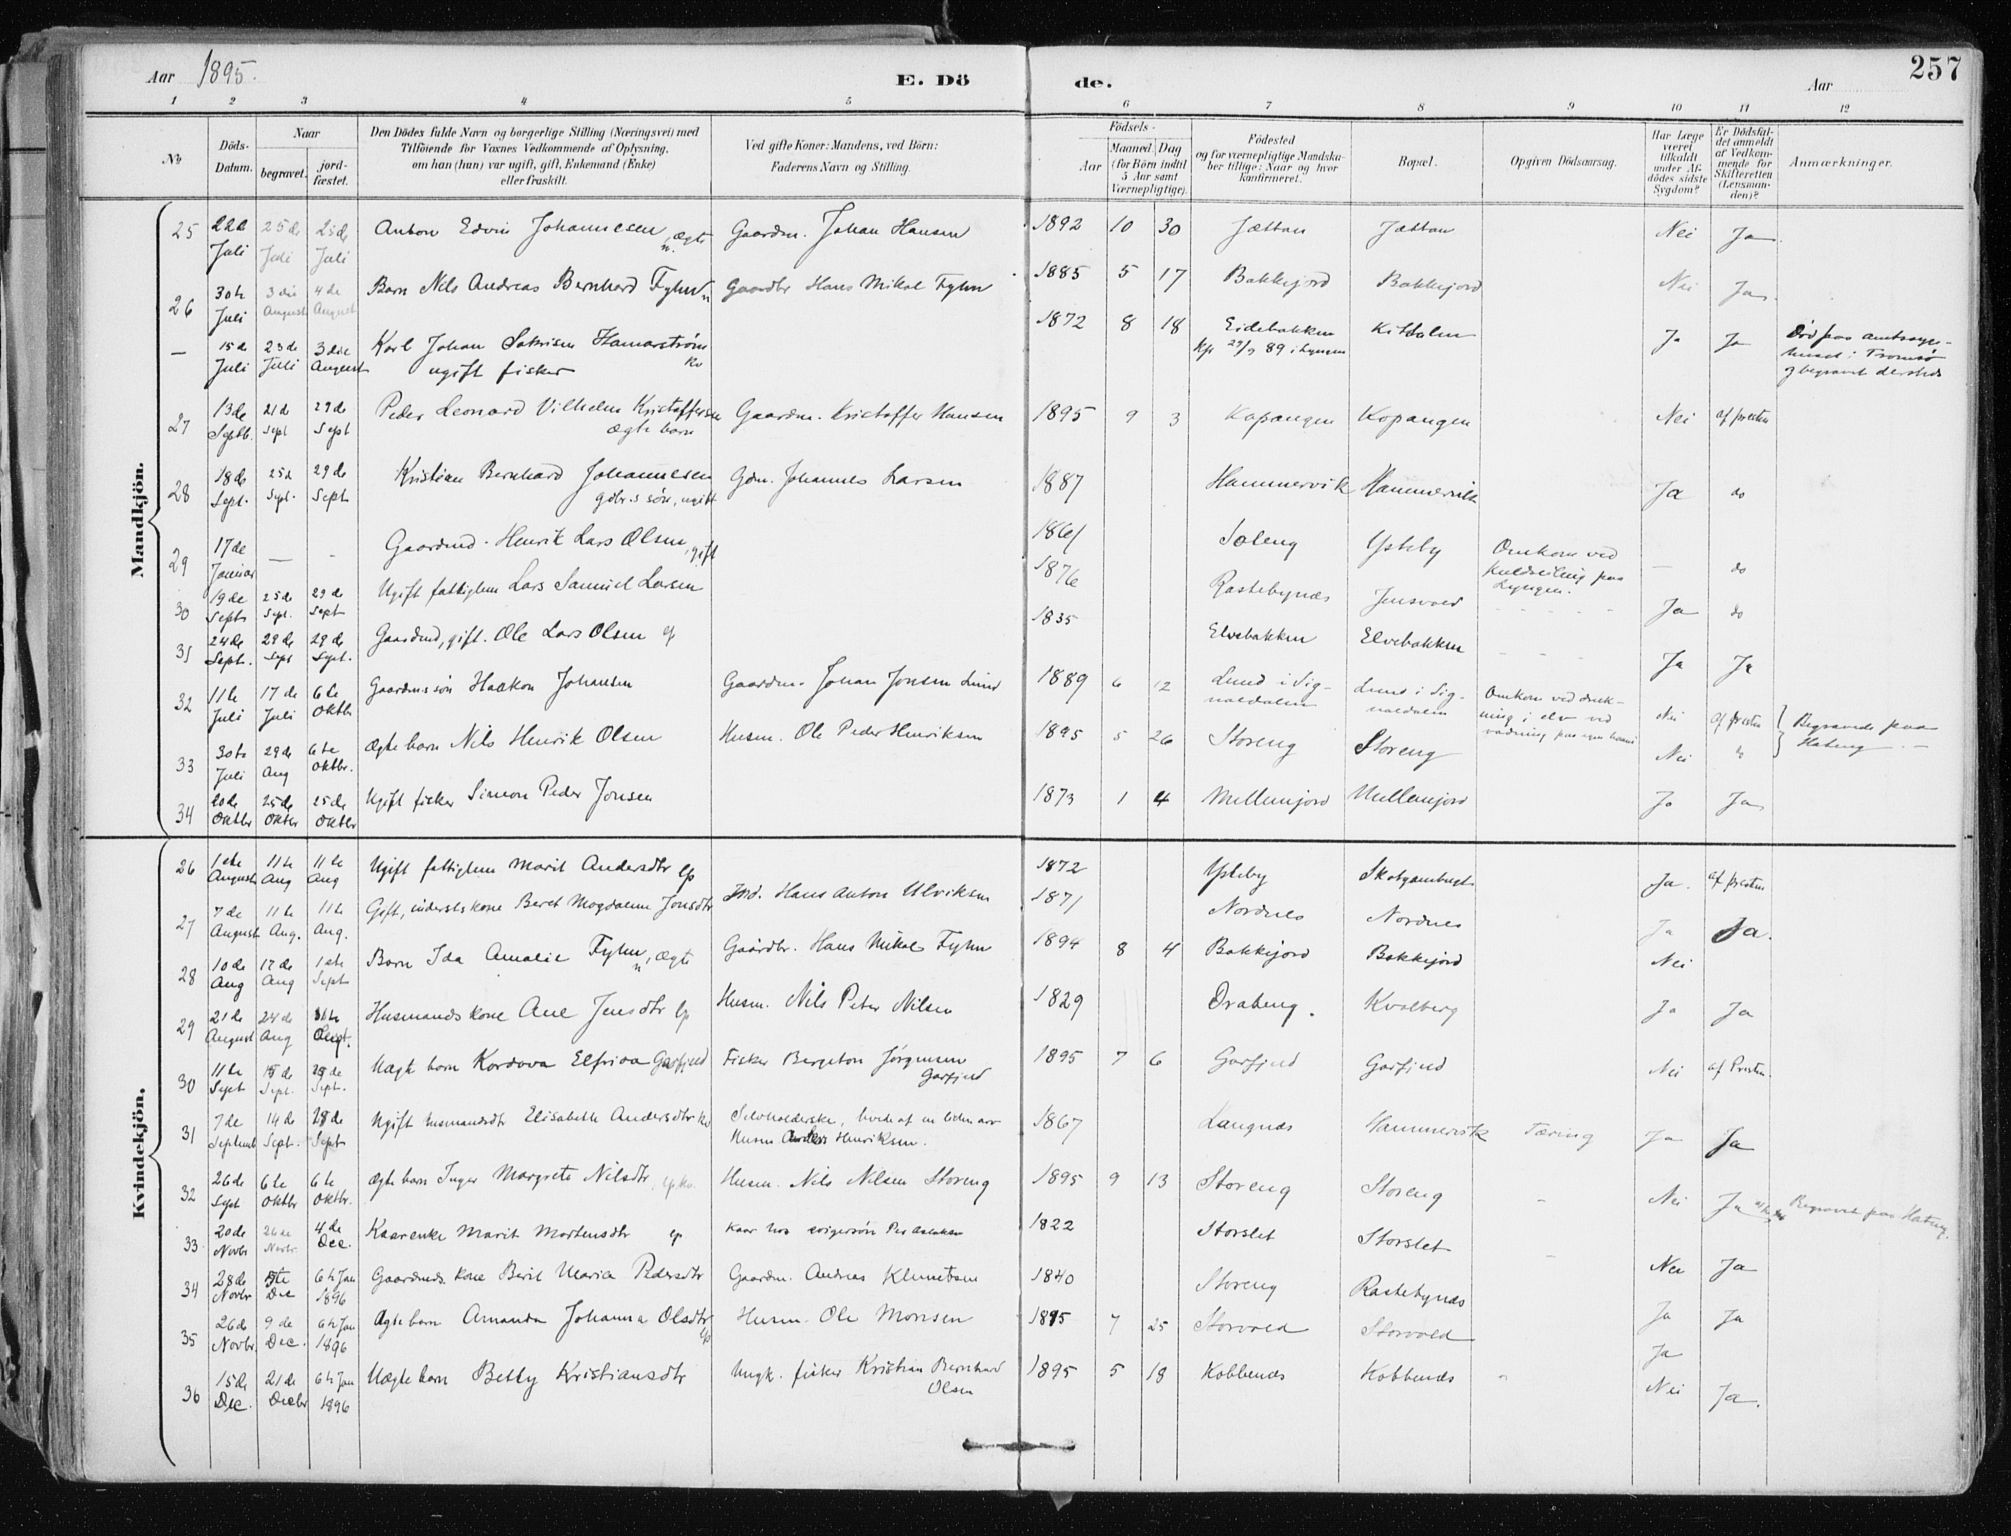 Aar 1895. E. Dö de. Aar 257
1 2 3 4 5 6 7 8 9 10 11 12
No
Döds-Datum.
Naar
begravet.
jord-fæstet.
Den Dödes fulde Navn og borgerlige Stilling (Næringsvei) med
Tilföiende for Voxnes Vedkommende af Oplysning,
om han (hun) var ugift, gift, Enkemand (Enke)
eller fraskilt.
Ved gifte Koner: Mandens, ved Börn:
Faderens Navn og Stilling.
Födsels-
Aar
Maaned. Dag
(for Börn indtil
5 Aar samt
Værnepligtige).
Födested
og for værnepligtige Mandska-
ber tillige: Naar og hvor
konfirmeret.
Bopæl.
Opgiven Dödsaarsag.
Har Læge
været
tilkaldt
under Af-
dödes sidste
Sygdom?
Er Dödsfal-
det anmeldt
af Vedkom-
mende for
Skifteretten
(Lensman-
den)?
Anmærkninger.
Mandkjön.
25 22de Juli 25de Juli 25de Juli Anton Edvin Johannesen, ægte Gaardm. Johan Hansen 1892 10 30 Jættan Jættan Nei Ja
26 30te Juli 3die August 4de August Barn Nils Andreas Bernhard Fyhn Gaardbr Hans Mikal Fyhn 1885 5 17 Bakkejord Bakkejord Nei Ja
— 15de Juli 23de Juli 3die August Karl Johan Hamarstrøm ugift fisker 1872 8 18 Eidebakken Kitdalen Ja Ja Död paa amtssyge-
89 i Lyngen
huset i Tromsø
og begravet dersteds
27 13de Septb. 21de Sept 29de Sept Peder Leonard Vilhelm Kristoffersen Gaardm. Kristoffer Hansen 1895 9 3 Kopangen Kopangen Nei af presten
ægte barn
28 18de Sept. 25de Sept. 29de Sept Kristian Bernhard Johannesen Gdm. Johannes Larsen 1887 Hammervik Hammervik Ja do
gdbr.s søn, ugift
29 17de Januar — - Gaardmd. Henrik Lars Olsen, gift 1861 Soleng Ysteby Omkom ved — do
kuldseiling paa
Lyngen.
30 19de Septb 25de Sept. 29de Sept Ugift fattiglem Lars Samuel Larsen 1876 Rastebynæs Jensvold Ja do
31 24de Sept. 29de Sept 29de Sept. Gaardmd, gift. Ole Lars Olsen 1835 Elvebakken Elvebakken Ja Ja
32 11te Juli 17de Juli 6te Oktbr Gaardmssøn Haakon Johansen Gaardm. Johan Jonsen Lund 1889 6 12 Lund i Sig-
naldalen Lund i Sig-
naldalen Omkom ved druk-
ning i elv ved
vadning Nei af presten Begravede paa
Hateng
33 30te Juli 29de Aug 6te Oktbr. Ægte barn Nils Henrik Olsen Husm. Ole Peder Henriksen 1895 5 26 Storeng Storeng Nei do
34 20de Oktbr 25de Oktbr 25de Oktbr Ugift fisker Simon Peder Jonsen 1873 1 4 Mellemjord Mellemjord Ja Ja
Kvindekjön.
26 1ste August 11te Aug 11te Aug Ugift fattiglem Marit Andersdtr lp 1872 Ysteby Ja. af presten
27 7de August 11te Aug. 11te Aug. Gift, inderstskone Beret Magdalene Jonsdtr Ind. Hans Anton Ulriksen 1871 Nordnes Nordnes Ja Ja.
28 10de Aug 17de Aug 1ste Sept Barn Ida Amalie Fyhn, ægte Gaardbr. Hans Mikal Fyhn 1894 8 4 Bakkejord Bakkejord Nei
29 21de August 24de Aug Sept. Husmandskone Ane Jensdtr lp Husm. Nils Peter Nilsen 1829 Drabeng. Kvalberg Ja Ja
30 11te Sept 15de Sept. 29de Sept. Uægte barn Kordova Elfrida Garfjeld Fisker Bergeton Jørgensen 1895 7 6 Garfjeld Garfjeld Nei af Presten.
Garfjeld
31 7de Septemb 14de Sept. Sept Ugift husmandsdtr Elisabeth Andersdtr Selvholderske, 1867 Langnæs Hammervik Tæring Ja Ja
Husm Henriksen.
32 26de Sept 6te Oktbr 6te Oktbr. Ægte barn Inger Margrete Nilsdtr Husm. Nils Nilsen Storeng 1895 9 13 Storeng Storeng - Nei Ja Begravet paa Hateng.
33 20de Novbr 26de Novbr. 4de Dec. Kaarenke Marit Mortensdtr lp Kaar hos svigersøn Per Aslaksen 1822 Storslet Storslet - Nei Ja
34 28de Novbr Dec 6te Jan 1896 Gaardmds. kone Berit Maria Pedersdtr Gaardm. Andreas Klemetsen 1840 Storeng Rastebynæs Ja Ja
35 26de Novbr. 9de Dec. 6te Jan 1896 Ægte barn Amanda Johanna Olsdtr lp Husm. Ole Monsen 1895 7 25 Storvold Storvold Ja
36 15de Dec. 21de Decbr 6te Jan 1896 Uægte barn Betty Kristiansdtr Ungk. fisker Kristian Bernhard 1895 5 18 Kobbenæs Kobbenæs Nei Ja.
Olsen